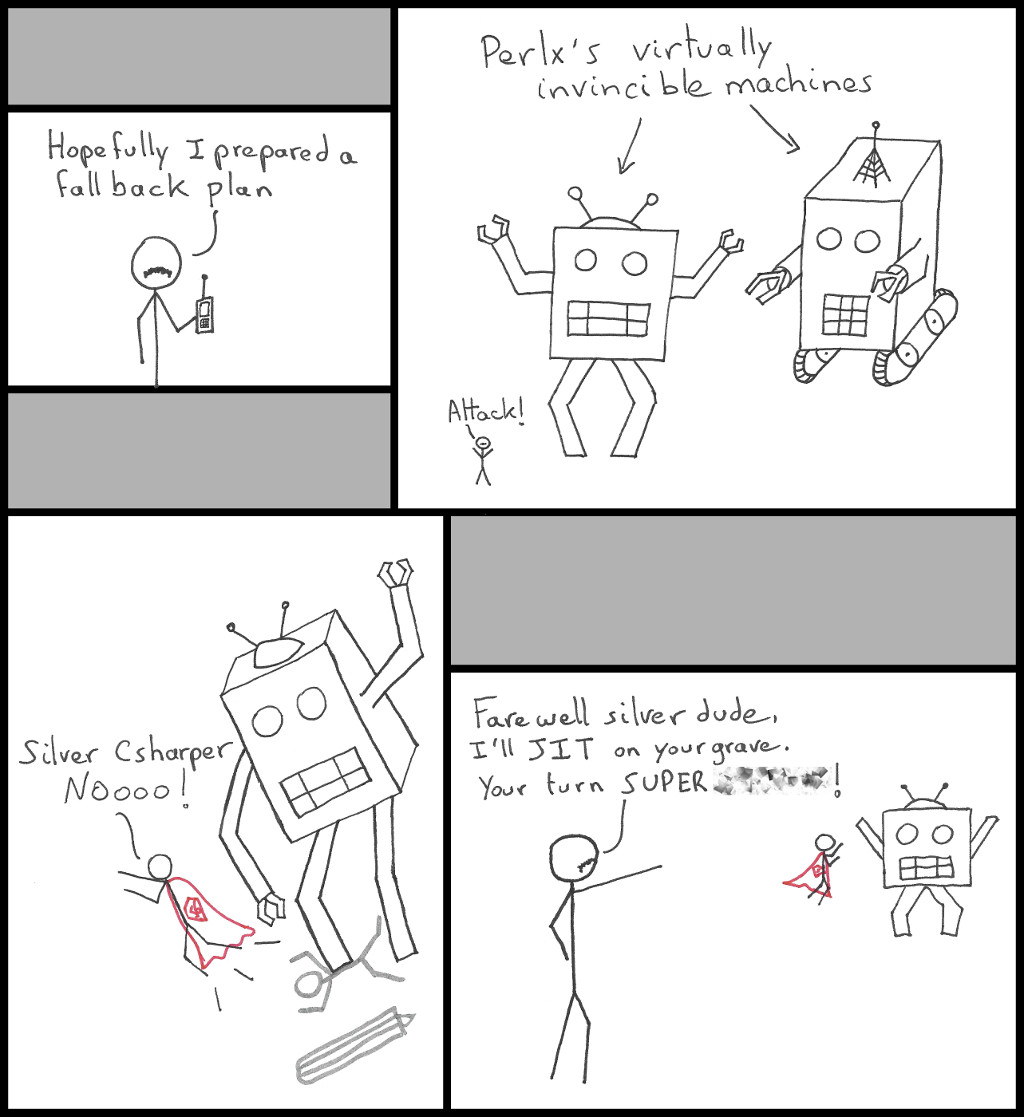 Hopefully I prepared a
fall back plan
Perlx's virtually
invincible machines
Attack!
Silver Csharper
NOooo!
Farewell silver dude,
I'll JIT on your grave.
Your turn SUPER !